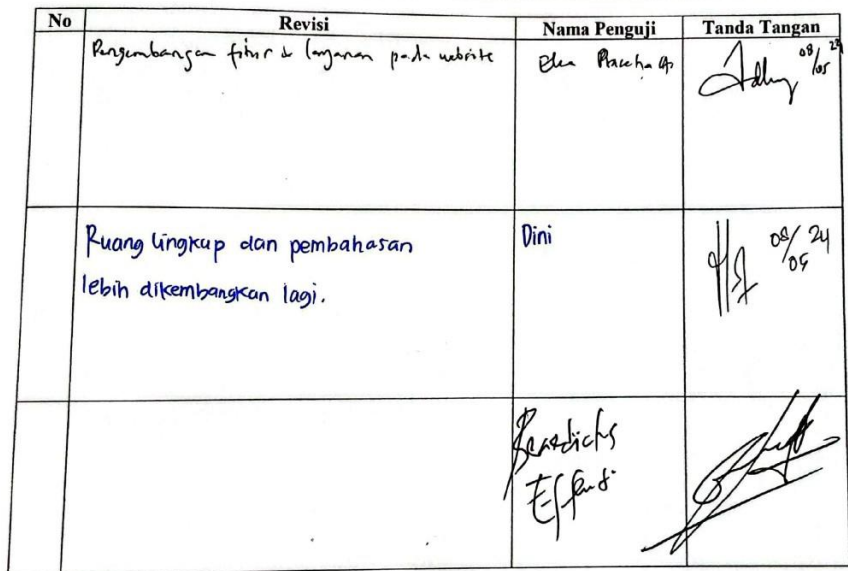 No Revisi Nama Penguji Tanda Tangan
Pengembangan fitur & layanan pada website Eka 08/05 24
Ruang lingkup dan pembahasan Dini 08/05 24
lebih dikembangkan lagi.
Benedictus
Effendi